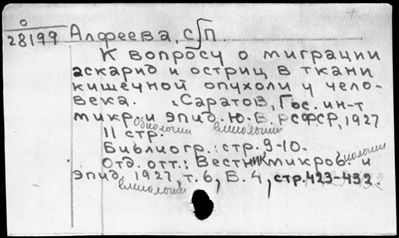 28199 Алфеева, С.П.
К вопросу о миграции
аскарид и остриц в ткани
кишечной опухоли у чело-
века. Саратов, Гос. ин-т
микробиологии и эпид.емиологии Ю.-В. РСФСР, 1927
11 стр.
Библиогр.: стр. 9-10.
Отд. отт.: Вестник микробиологии и
эпид.емиологии 1927, т. 6, В. 4, стр. 423-432.